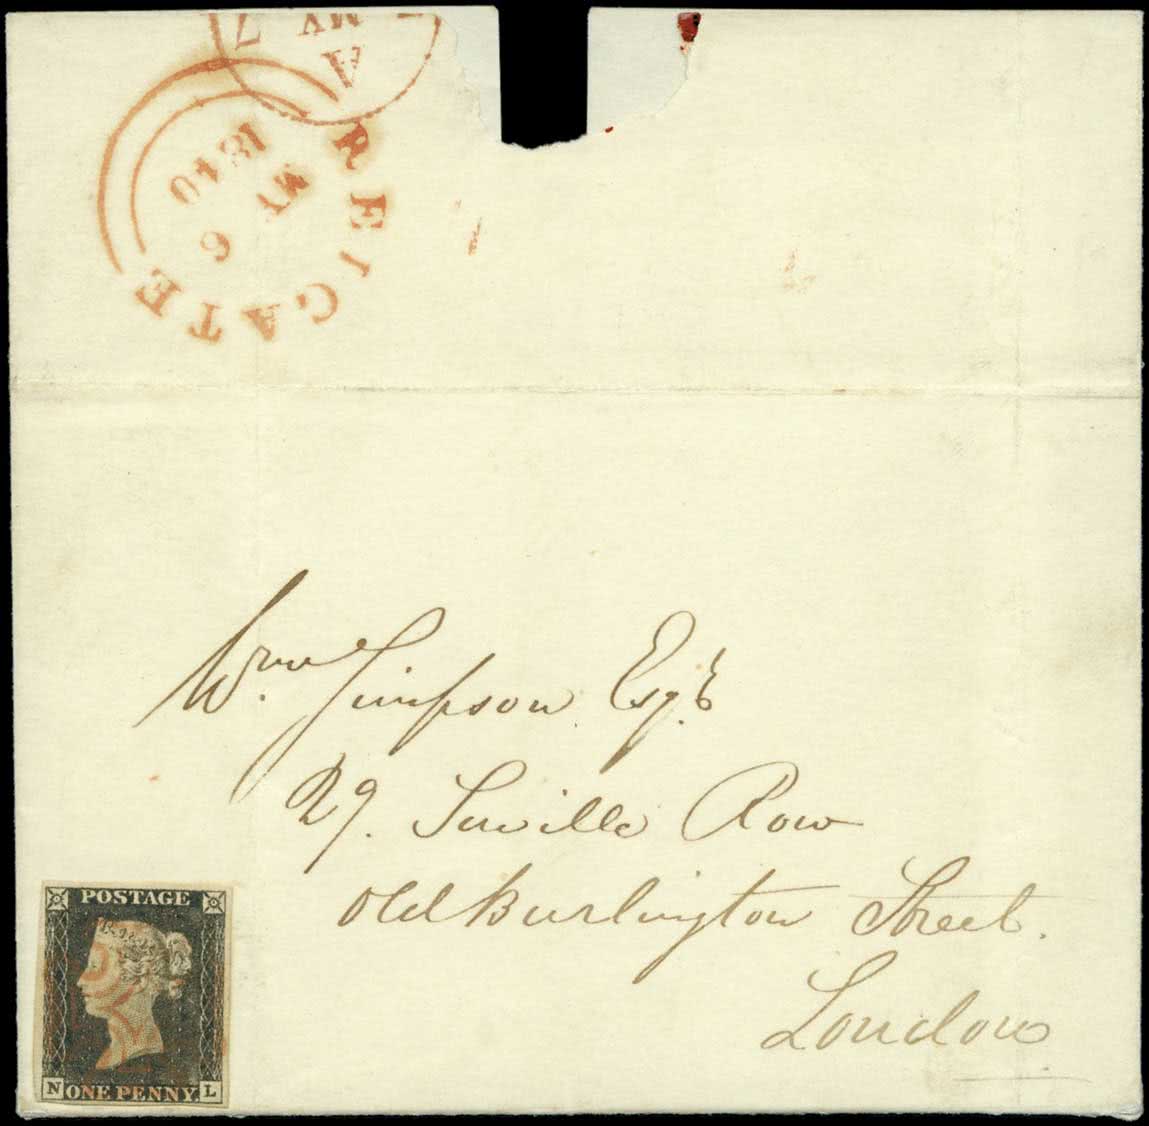 MY 7
A
REIGATE
MY 6
1840
Wm Simpson Esqr
29. Saville Row
Old Burlington Street.
London
POSTAGE
N ONE PENNY. L